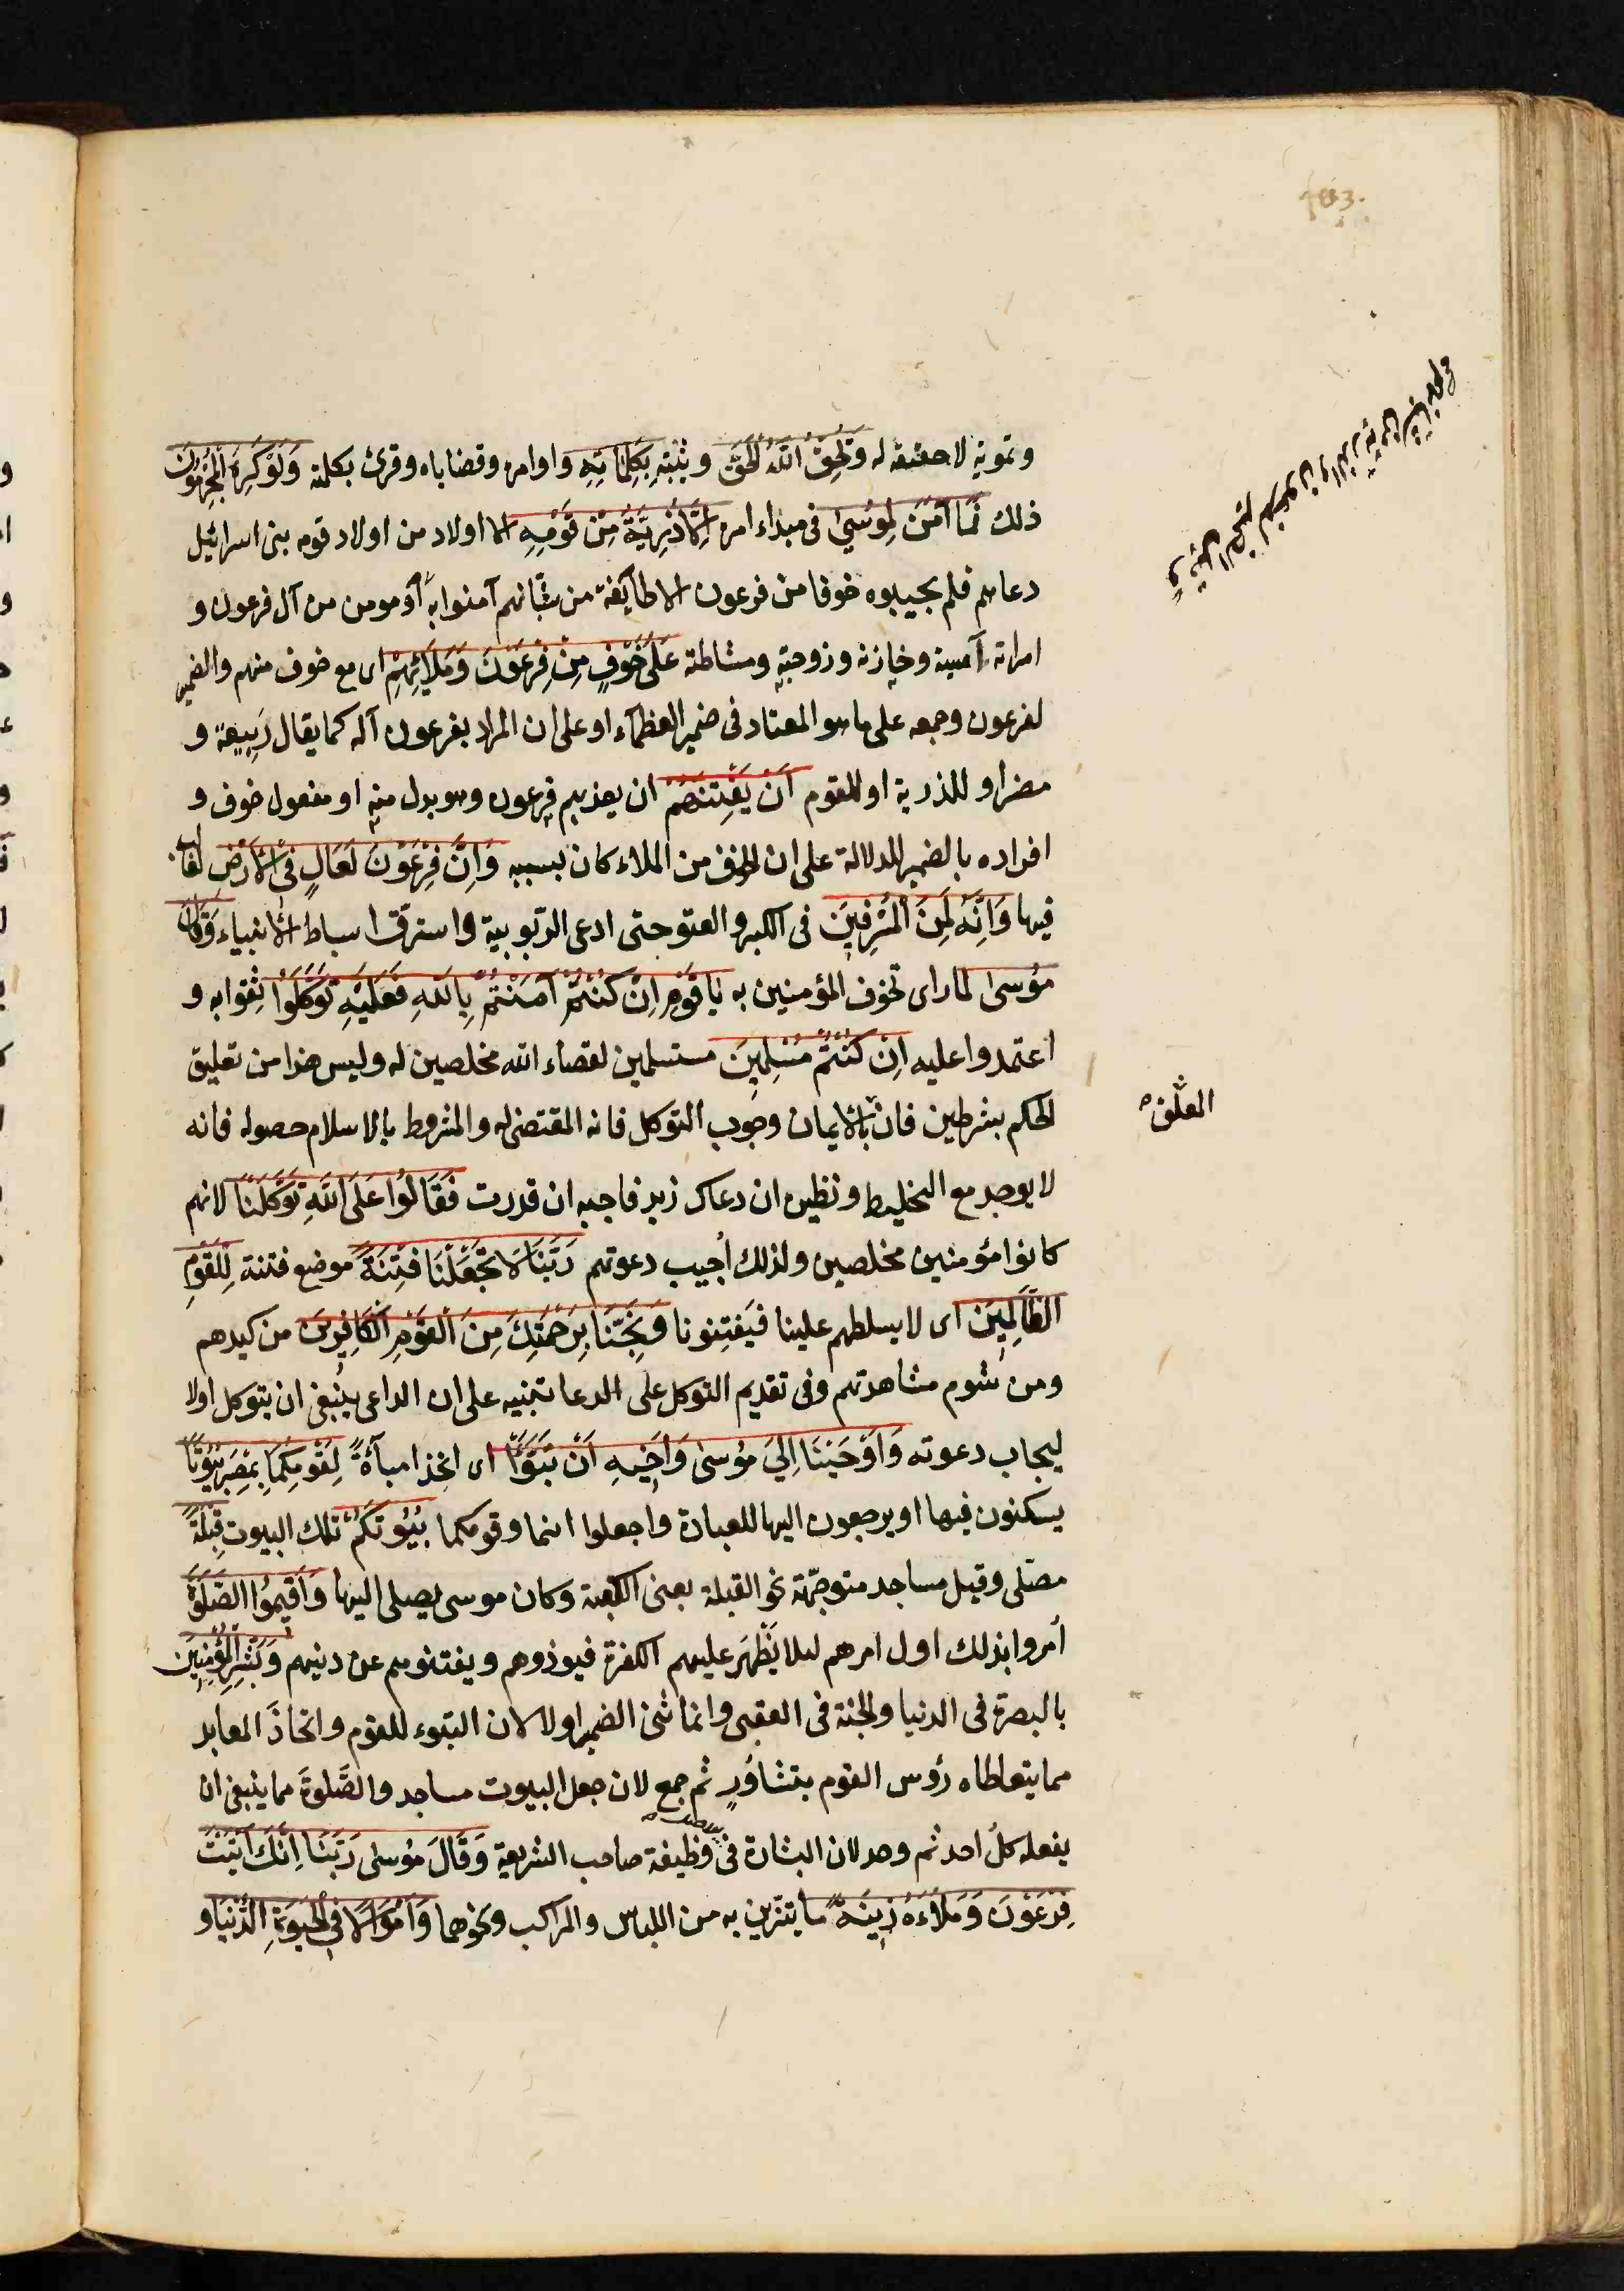 وتمويه لا حقيقة له وَيُحِقُّ اللَّهُ الْحَقَّ ويثبته بِكَلِمَاتِهِ واوامره وقضاياه وقرئ بكلمته وَلَوْ كَرِهَ الْمُجْرِمُونَ
ذلك فَمَا آمَنَ لِمُوسَى فى مبداء امره اِلَّا ذُرِّيَّةٌ مِنْ قَوْمِهِ الا اولاد من اولاد قومه بنى اسرائيل
دعاهم فلم يجيبوه خوفا من فرعون الا طائفة من شبّانهم آمنوا به او مومن من آل فرعون و
امراته آسية وخازنه وزوجته ومشاطته عَلَى خَوْفٍ مِنْ فِرْعَوْنَ وَمَلَائِهِمْ اى مع خوف منهم والضمير
لفرعون وجمعه على ما هو المعتاد فى ضمير العظماء او على ان المراد بفرعون آله كما يقال رَبِيعة و
مضر او للذرية او للقوم اَنْ يَفْتِنَهُمْ ان يعذبهم فرعون وهو بدل منه او مفعول خوف و
افراده بالضمير للدلالة على ان الخوف من الملاء كان بسببه وَاِنَّ فِرْعَوْنَ لَعَالٍ فِى الْاَرْضِ لغالب
فيها وَاِنَّهُ لَمِنَ الْمُسْرِفِينَ فى الكبر والعتو حتى ادعى الرّبوبية واسترقّ اسباط الانبياء وَقَالَ
مُوسَى لما راى تخوف المؤمنين به يَا قَوْمِ اِنْ كُنْتُمْ آمَنْتُمْ بِاللَّهِ فَعَلَيْهِ تَوَكَّلُوا ثِقوا به و
اعتمدوا عليه اِنْ كُنْتُمْ مُسْلِمِينَ مستسلمين لقضاء الله مخلصين له وليس هذا من تعليق
الحكم بشرطين فان بالايمان وجوب التوكل فانه المقتضى له والمشروط بالاسلام حصوله فانه
المعلّق
لا يوجد مع التخليط ونظيره ان دعاك زيد فاجبه ان قدرت فَقَالُوا عَلَى اللَّهِ تَوَكَّلْنَا لانهم
كانوا مؤمنين مخلصين ولذلك اُجيب دعوتهم رَبَّنَا لَا تَجْعَلْنَا فِتْنَةً موضع فتنة لِلْقَوْمِ
الظَّالِمِينَ اى لا يسلطهم علينا فيَفتِنونا وَنَجِّنَا بِرَحْمَتِكَ مِنَ الْقَوْمِ الْكَافِرِينَ من كيدهم
ومن شوم مشاهدتهم وفى تقديم التوكل على الدعا تنبيه على ان الداعى ينبغى ان يتوكل اولا
ليجاب دعوته وَاَوْحَيْنَا اِلَى مُوسَى وَاَخِيهِ اَنْ تَبَوَّا اى اتخذا مباءةً لِقَوْمِكُمَا بِمِصْرَ بُيُوتًا
يسكنون فيها او يرجعون اليها للعبادة واجعلوا انتما وقومكما بُيُوتَكُمْ تلك البيوت قِبْلَةً
مصلّى وقيل مساجد متوجّهة نحو القبلة يعنى الكعبة وكان موسى يصلى اليها وَاَقِيمُوا الصَّلَوةَ
اُمروا بذلك اول امرهم لئلا يَظْهَر عليهم الكفرة فيوذوهم ويفتنوهم عن دينهم وَبَشِّرِ الْمُؤْمِنِينَ
بالنصرة فى الدنيا والجنة فى العقبى وانما ثنى الضمير اولا لان التبوء للقوم واتخاذَ المعابد
مما يتعاطاه رؤس القوم بتشاوُرٍ ثم جمع لان جعل البيوت مساجد والصَّلوةَ مما ينبغى ان
يفعله كلّ احد ثم وحد لان البشارة فى وظيفة صاحب الشريعة وَقَالَ مُوسَى رَبَّنَا اِنَّكَ آتَيْتَ
فِرْعَوْنَ وَمَلَاءَهُ زِينَةً ما يتزين به من اللباس والمراكب ونحوهما وَاَمْوَالًا فِى الْحَيَوةِ الدُّنْيَا و